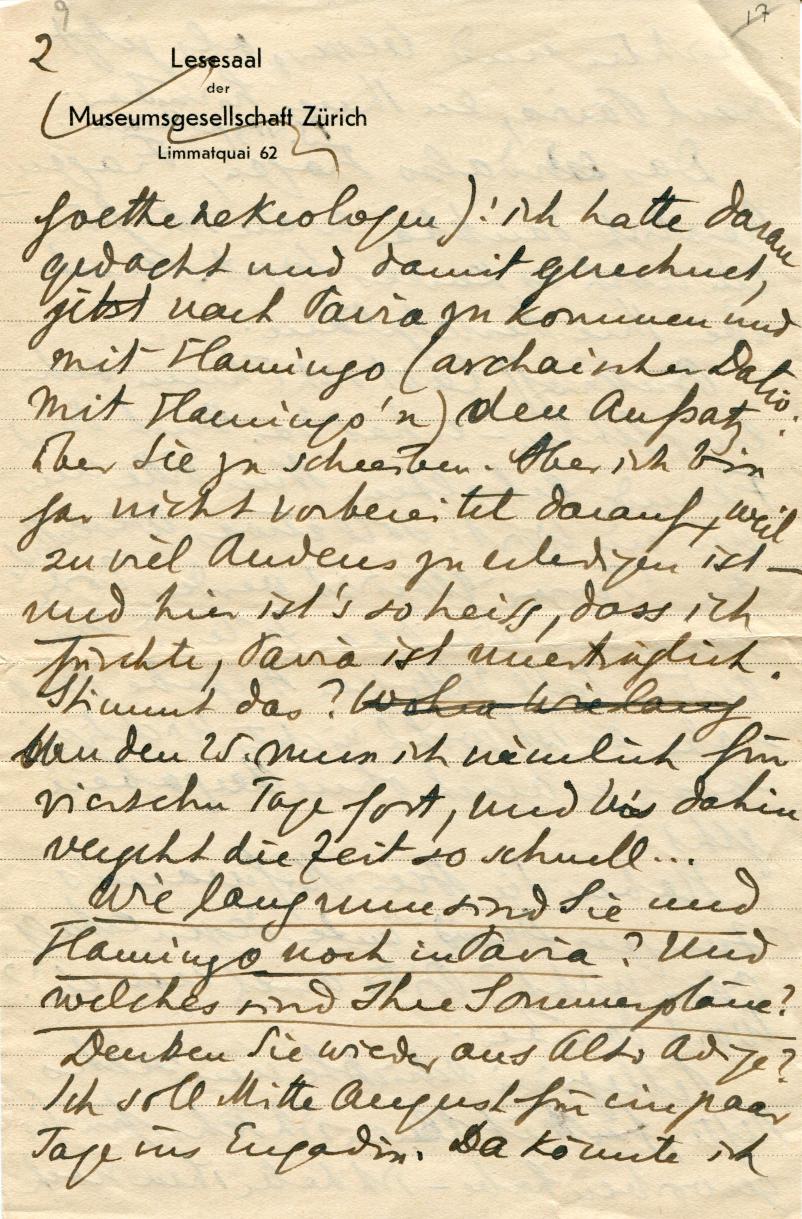 9
17
2
Lesesaal
der
Museumsgesellschaft Zürich
Limmatquai 62
Goethenekrologen)! ich hatte daran
gedacht und damit gerechnet,
jetzt nach Pavia zu kommen und
mit Flamingo (archaischer Dativ:
Mit Flamingo'n) den Aufsatz
über Sie zu schreiben. Aber ich bin
gar nicht vorbereitet darauf, weil
zu viel Anderes zu erledigen ist –
und hier ist's so heiss, dass ich
fürchte, Pavia ist unerträglich.
Stimmt das? Wohin Wie lang
den 25. muss ich nämlich für
vierzehn Tage fort, und bis dahin
vergeht die Zeit so schnell...
Wie lang nun sind Sie und
Flamingo noch in Pavia? Und
welches sind Ihre Sommerpläne?
Denken Sie wieder ans Alto Adige?
Ich soll Mitte August für ein paar
Tage ins Engadin. Da könnte ich